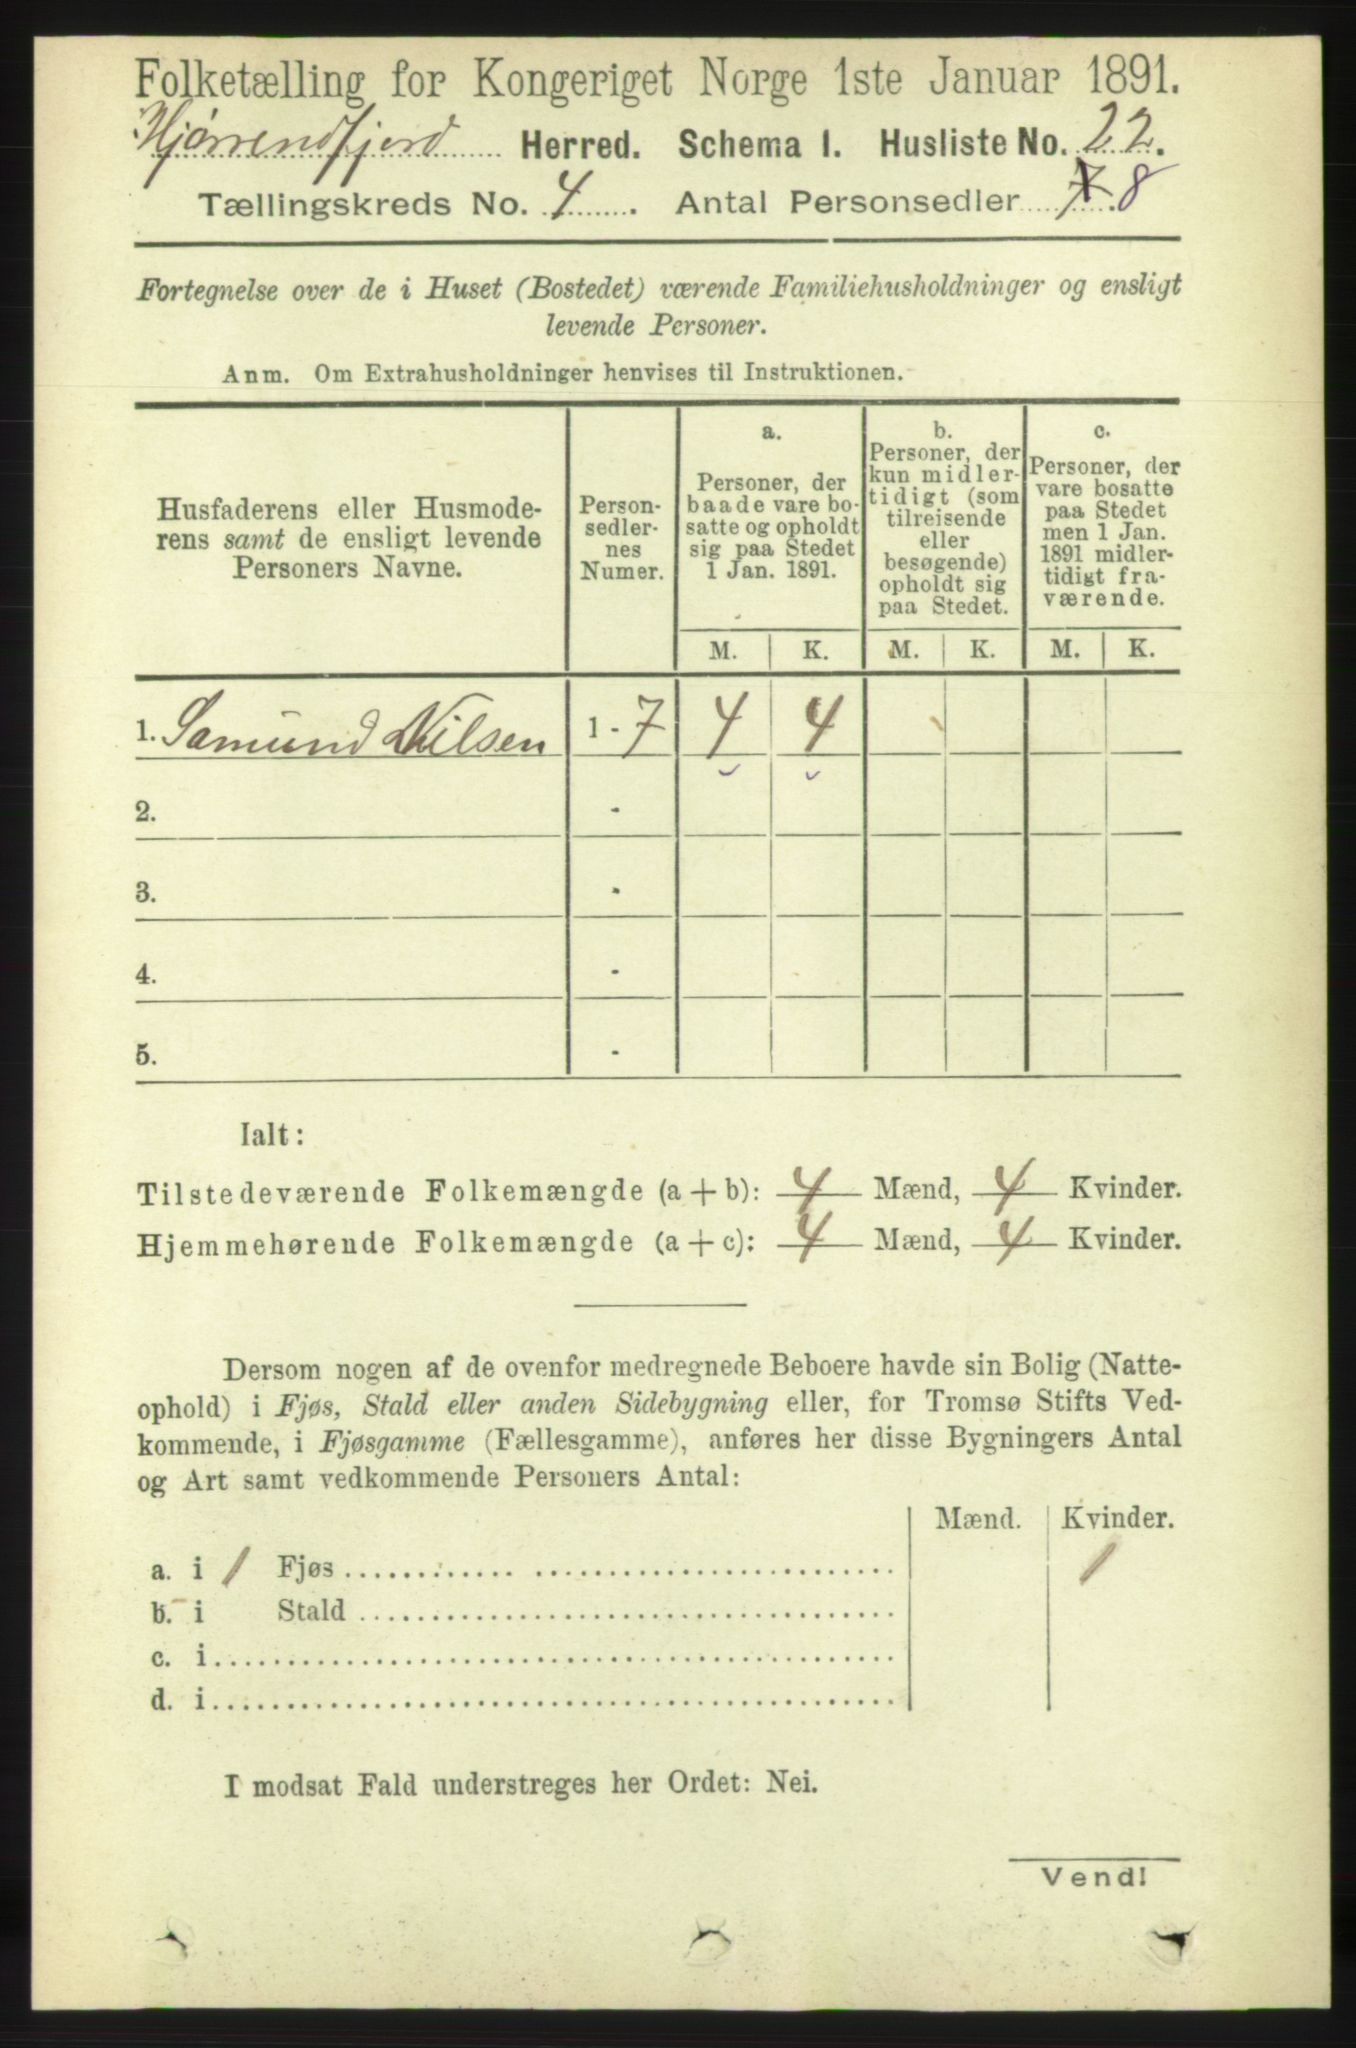 Folketælling for Kongeriget Norge 1ste Januar 1891.
Hjørrendfjord Herred. Schema I. Husliste No. 22.
Tællingskreds No. 4. Antal Personsedler 7 8
Fortegnelse over de i Huset (Bostedet) værende Familiehusholdninger og ensligt
levende Personer.
Anm. Om Extrahusholdninger henvises til Instruktionen.
Husfaderens eller Husmode-
rens samt de ensligt levende
Personers Navne.
Person-
sedler-
nes
Numer.
a.
Personer, der
baade vare bo-
satte og opholdt
sig paa Stedet
1 Jan. 1891.
b.
Personer, der
kun midler-
tidigt (som
tilreisende
eller
besøgende)
opholdt sig
paa Stedet.
c.
Personer, der
vare bosatte
paa Stedet
men 1 Jan.
1891 midler-
tidigt fra-
værende.
M. K. M. K. M. K.
1. Samund Nilsen 1 - 7 4 4
2. -
3. -
4. -
5. -
Ialt:
Tilstedeværende Folkemængde (a + b): 4 Mænd, 4 Kvinder.
Hjemmehørende Folkemængde (a + c): 4 Mænd, 4 Kvinder.
Dersom nogen af de ovenfor medregnede Beboere havde sin Bolig (Natte-
ophold) i Fjøs, Stald eller anden Sidebygning eller, for Tromsø Stifts Ved-
kommende, i Fjøsgamme (Fællesgamme), anføres her disse Bygningers Antal
og Art samt vedkommende Personers Antal:
Mænd. Kvinder.
a. i 1 Fjøs 1
b. i Stald
c. i
d. i
I modsat Fald understreges her Ordet: Nei.
Vend!